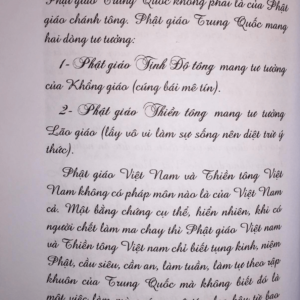 Phật giáo Trung Quốc không phải là của Phật
giáo chánh tông. Phật giáo Trung Quốc mang
hai dòng tư tưởng:
1- Phật giáo Tịnh Độ tông mang tư tưởng
của Khổng giáo (cúng bái mê tín).
2- Phật giáo Thiền tông mang tư tưởng
Lão giáo (lấy vô vi làm sự sống nên diệt trừ ý
thức).
Phật giáo Việt Nam và Thiền tông Việt
Nam không có pháp môn nào là của Việt Nam
cả. Một bằng chứng cụ thể, hiển nhiên, khi có
người chết làm ma chay thì Phật giáo Việt nam
và Thiền tông Việt nam chỉ biết tụng kinh, niệm
Phật, cầu siêu, cần an, làm tuần, làm tự theo rập
khuôn của Trung Quốc mà không biết đó là
một việc làm